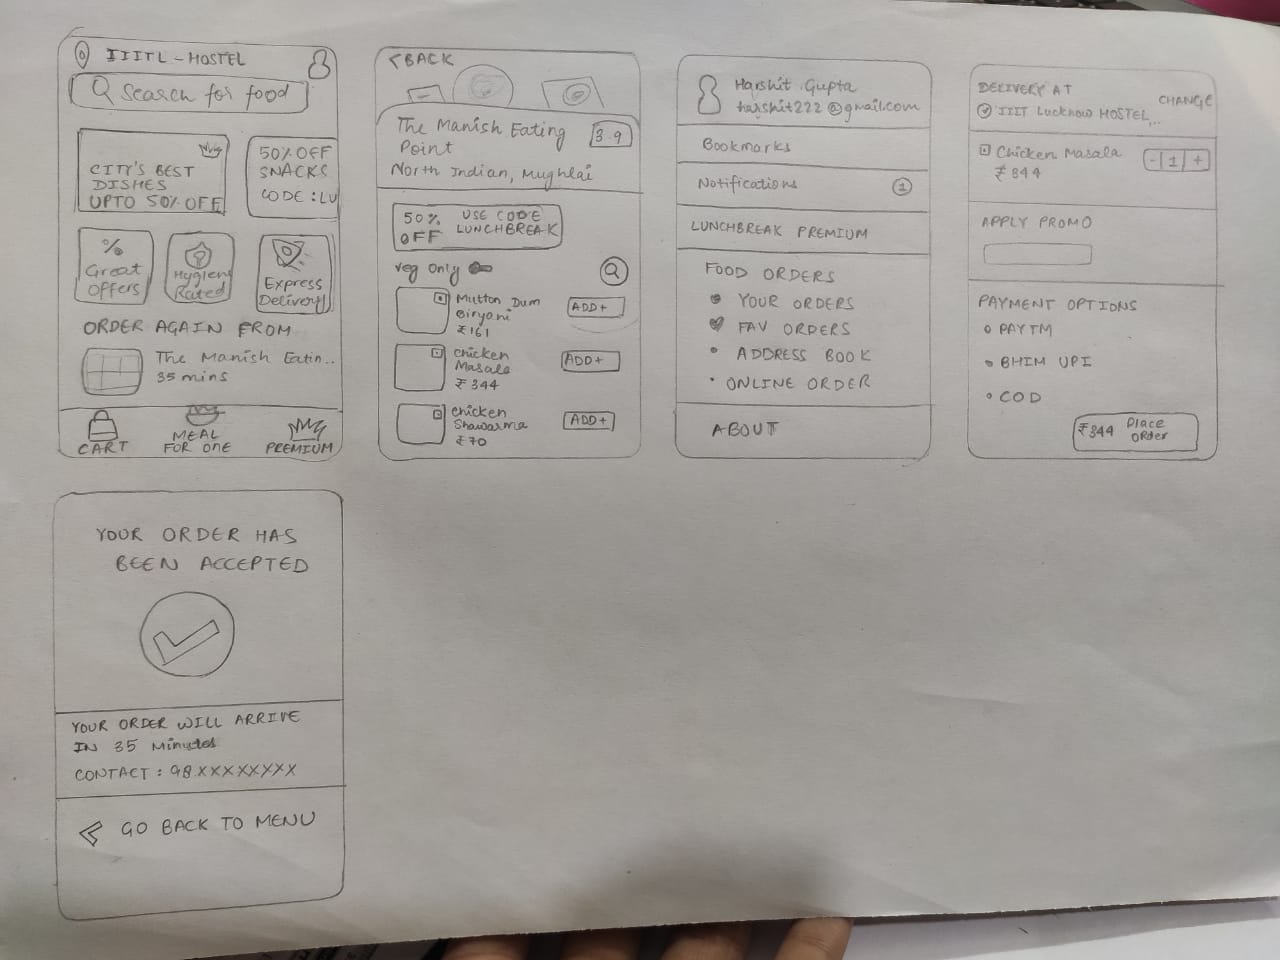 IIITL - HOSTEL
Search for food
CITY'S BEST
DISHES
UPTO 50% OFF
50% OFF
SNACKS
CODE : LU
%
Great
Offers
Hygiene
Rated
Express
Delivery
ORDER AGAIN FROM
The Manish Eatin..
35 mins
CART
MEAL
FOR ONE
PREMIUM
< BACK
The Manish Eating
Point
3.9
North Indian, Mughlai
50%
OFF
USE CODE
LUNCHBREAK
Veg only
Mutton Dum
Biryani
₹161
ADD+
Chicken
Masala
₹344
ADD+
Chicken
Shawarma
₹70
ADD+
Harshit Gupta
harshit222@gmail.com
Bookmarks
Notifications 1
LUNCHBREAK PREMIUM
FOOD ORDERS
YOUR ORDERS
FAV ORDERS
ADDRESS BOOK
ONLINE ORDER
ABOUT
DELIVERY AT
CHANGE
IIIT Lucknow HOSTEL...
Chicken Masala
₹344
- 1 +
APPLY PROMO
PAYMENT OPTIONS
PAYTM
BHIM UPI
COD
₹344 Place
Order
YOUR ORDER HAS
BEEN ACCEPTED
YOUR ORDER WILL ARRIVE
IN 35 Minutes
CONTACT : 98XXXXXXXX
GO BACK TO MENU